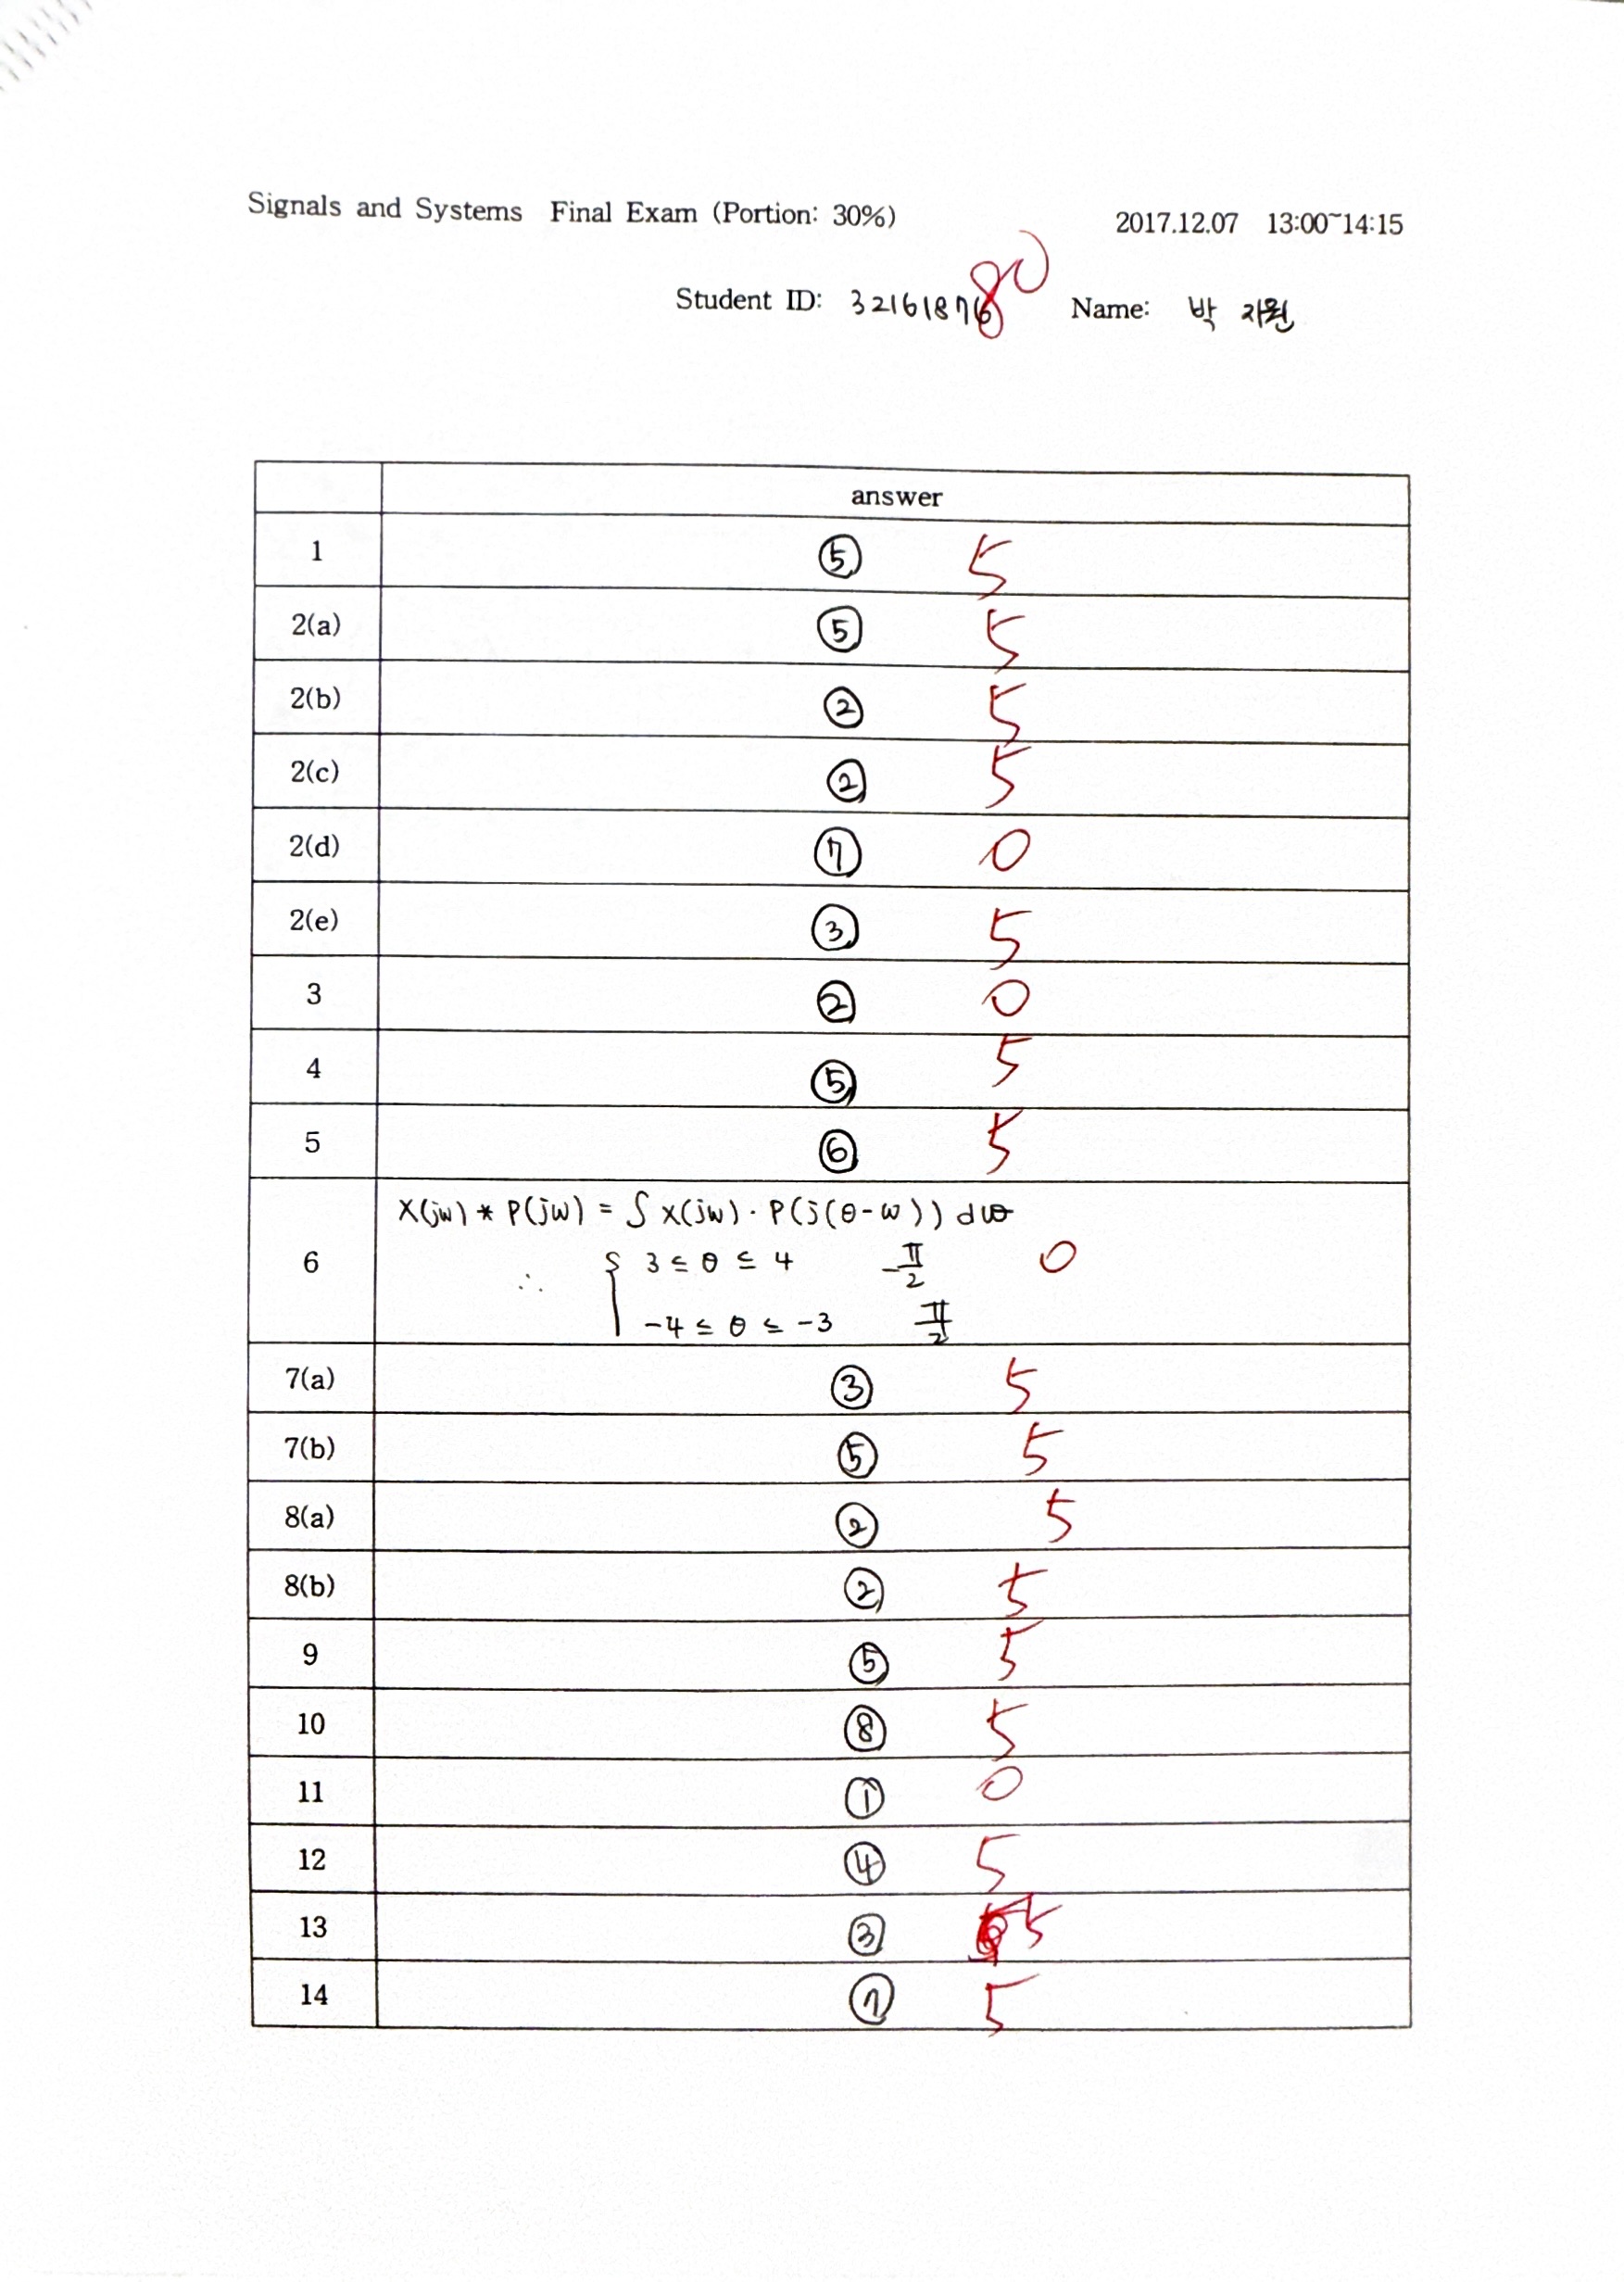 Signals and Systems Final Exam (Portion: 30%) 2017.12.07 13:00~14:15
80
Student ID: 32161876 Name: 박지원
answer
1 ⑤ 5
2(a) ⑤ 5
2(b) ② 5
2(c) ② 5
2(d) ⑦ 0
2(e) ③ 5
3 ② 0
4 ⑤ 5
5 ⑥ 5
X(jw) * P(jw) = ∫ X(jw) · P(j(θ-w)) dw
6 ∴ { 3 ≤ θ ≤ 4 -π/2 0
-4 ≤ θ ≤ -3 π/2
7(a) ③ 5
7(b) ⑤ 5
8(a) ② 5
8(b) ② 5
9 ⑤ 5
10 ⑧ 5
11 ① 0
12 ④ 5
13 ③ 5
14 ⑦ 5